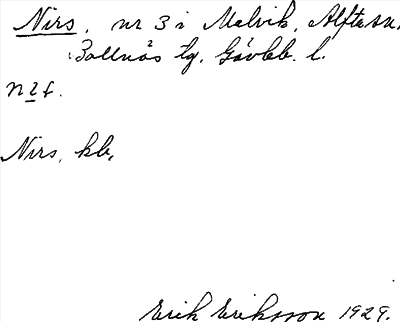 Nirs, nr 3 i Malvik, Alfta sn,
Bollnäs tg, Gävleb. l.
Nirs, kb,
Erik Eriksson 1929.